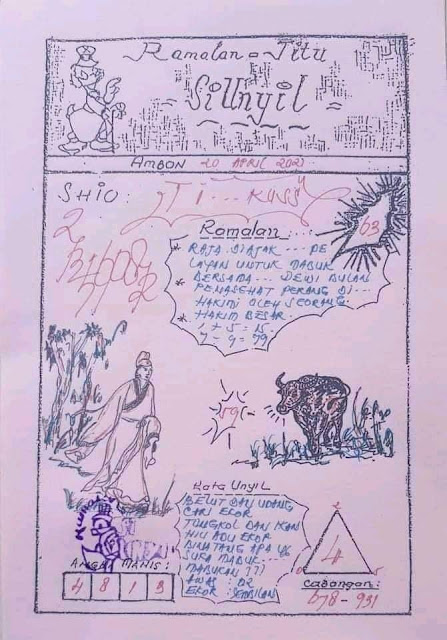 Ramalan = Jitu
SiUnyil
AMBON 20 APRIL 2021
SHIO:
TI... KUSS
63
2
Ramalan
* RAJA DIAJAK --- PE
LAYAN UNTUK MABUK
BERSAMA --- DEWI BULAN
* PENASEHAT PERANG DI---
HAKIMI OLEH SEORANG
HAKIM BESAR
1 + 5 = 15
7 - 9 = 79
Kata Unyil
BELUT DAN UDANG
CARI EKOR
TONGKOL DAN IKAN
HIU ADU EKOR
BINATANG APA YG
SUKA MABUK-
MABUKAN ???
AWAS : 02
EKOR : SEMBILAN
ANGKA MANIS :
4 8 1 3
2
4
0
5
Cabangan :
678 - 931